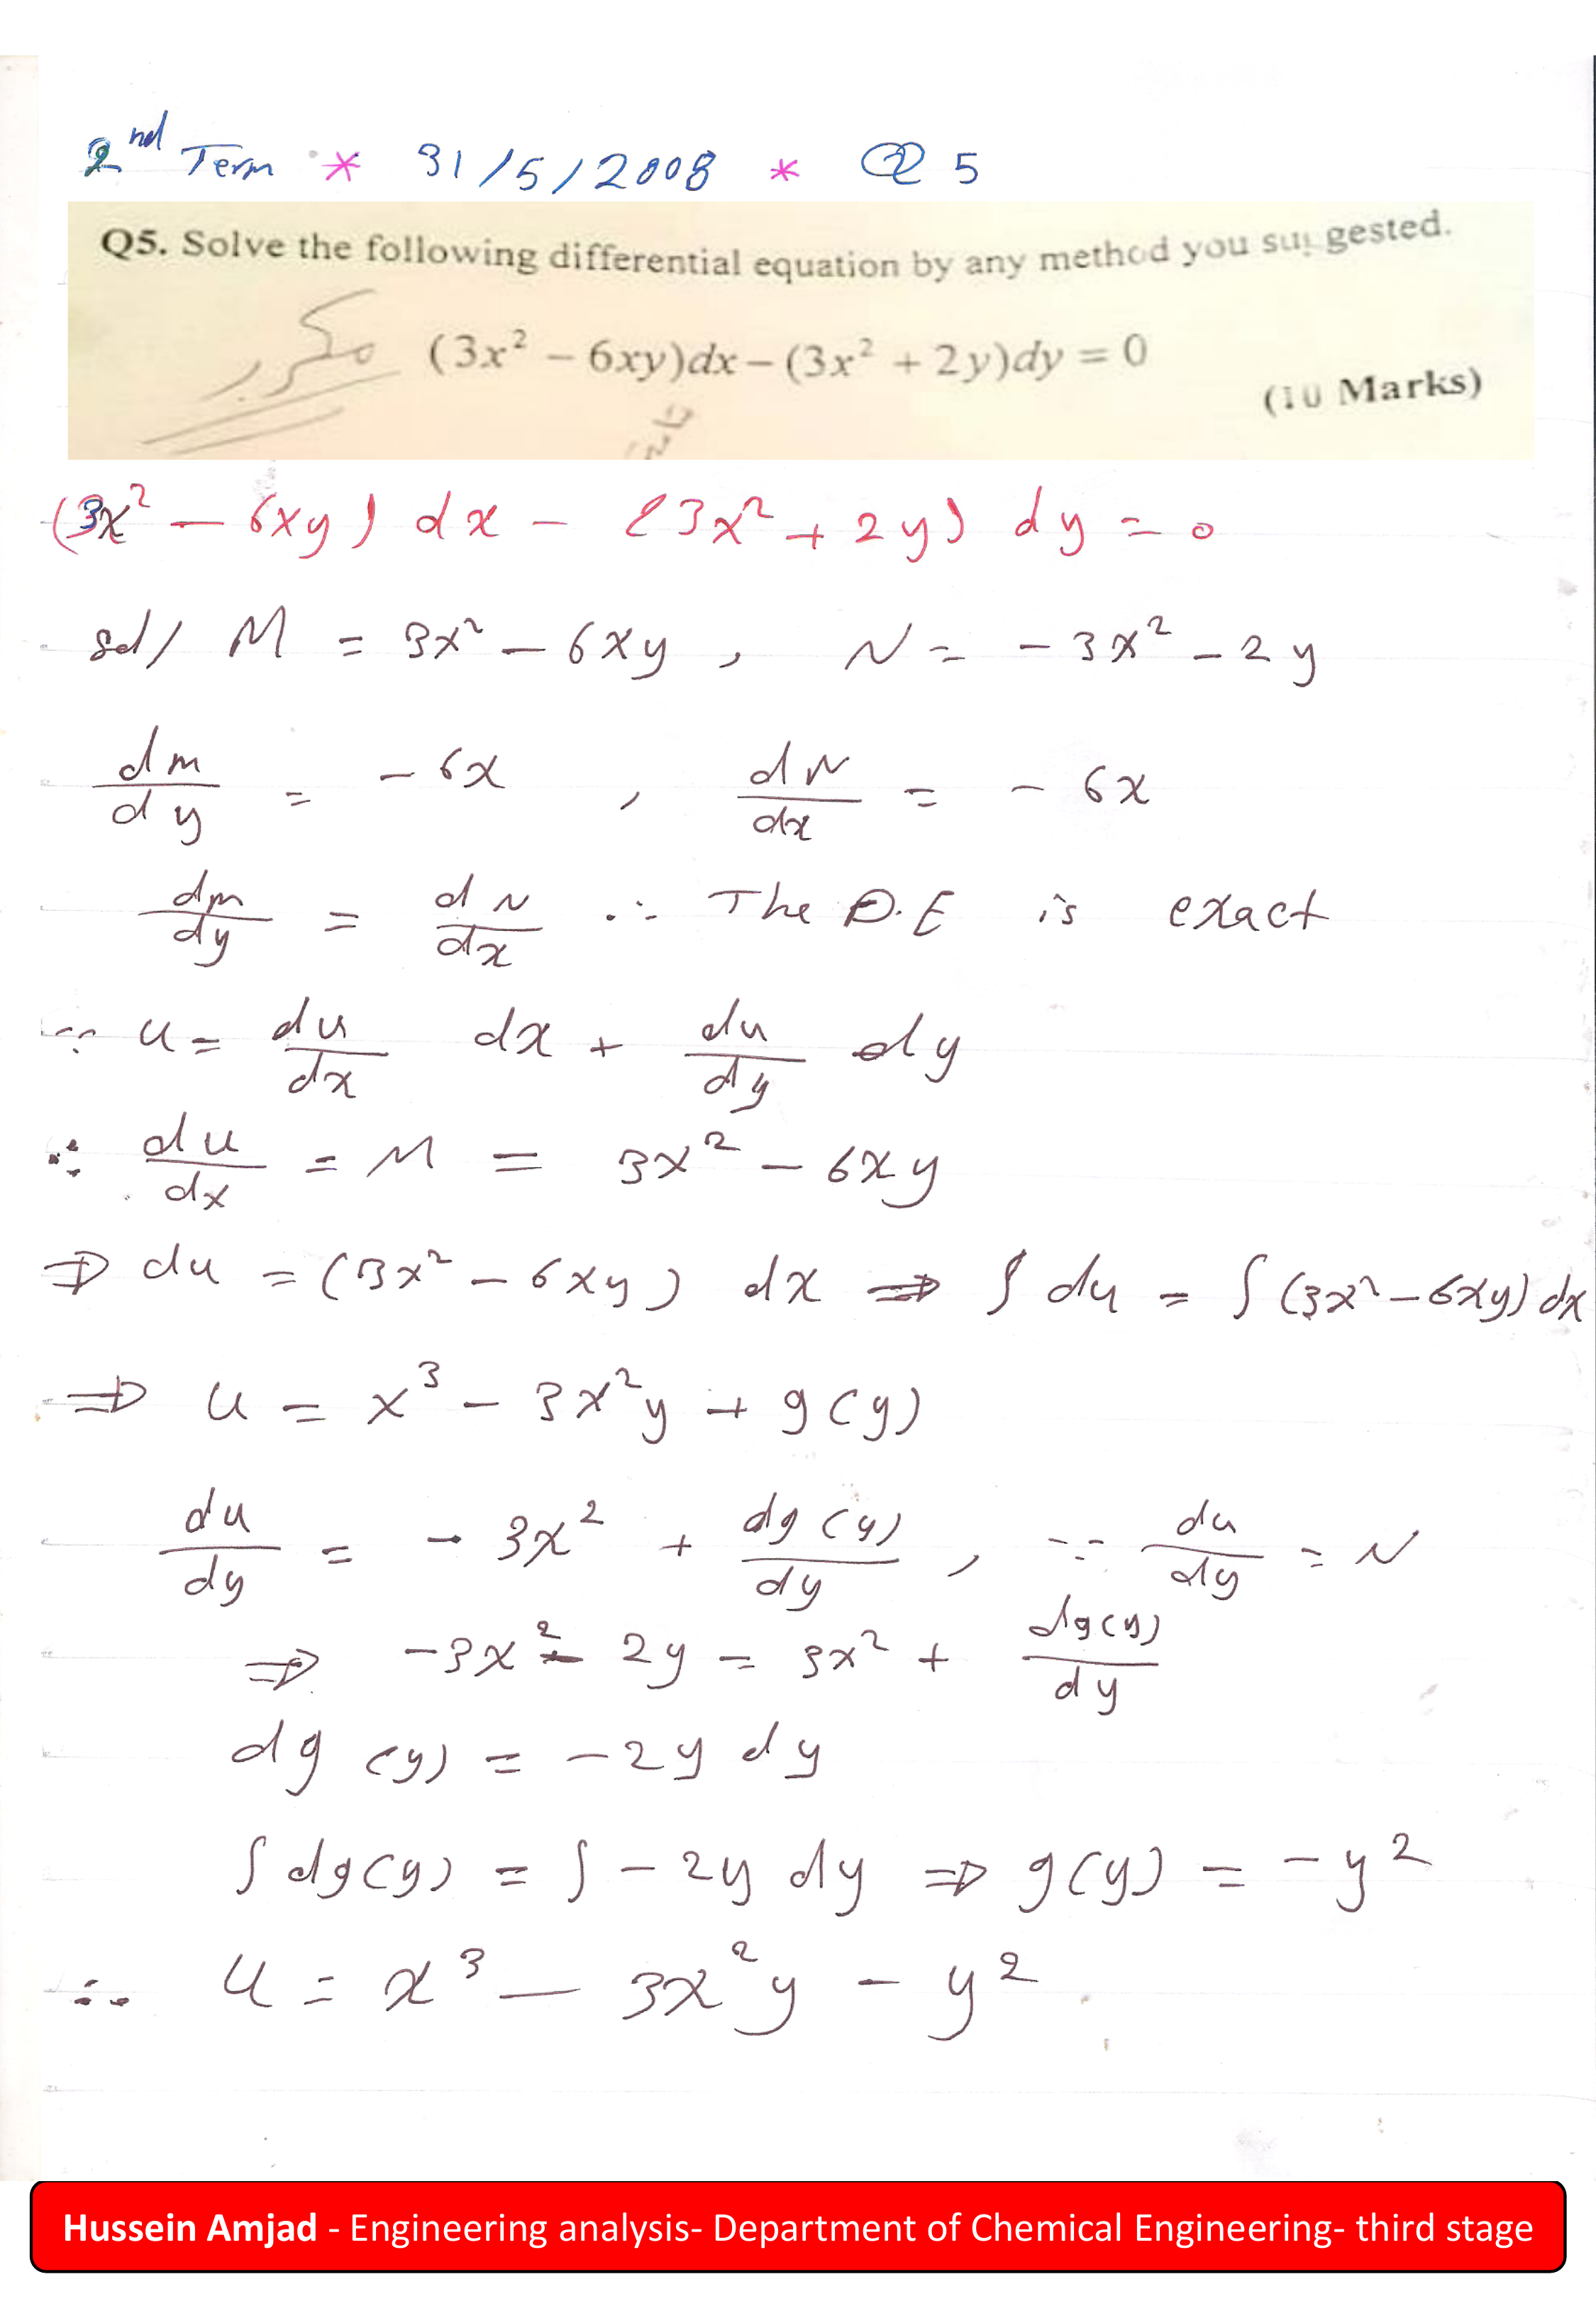 2nd Term * 31/5/2008 * Q 5
Q5. Solve the following differential equation by any method you suggested.
(3x² − 6xy)dx − (3x² + 2y)dy = 0
(10 Marks)
(3x² − 6xy) dx − (3x² + 2y) dy = 0
sol/ M = 3x² − 6xy , N = −3x² − 2y
dm/dy = −6x , dN/dx = −6x
dm/dy = dN/dx ∴ The D.E is exact
∵ u = du/dx dx + du/dy dy
∴ du/dx = M = 3x² − 6xy
⇒ du = (3x² − 6xy) dx ⇒ ∫ du = ∫ (3x² − 6xy) dx
⇒ u = x³ − 3x²y + g(y)
du/dy = − 3x² + dg(y)/dy , ∵ du/dy = N
⇒ −3x² − 2y = 3x² + dg(y)/dy
dg(y) = −2y dy
∫ dg(y) = ∫ −2y dy ⇒ g(y) = −y²
∴ u = x³ − 3x²y − y²
Hussein Amjad - Engineering analysis- Department of Chemical Engineering- third stage